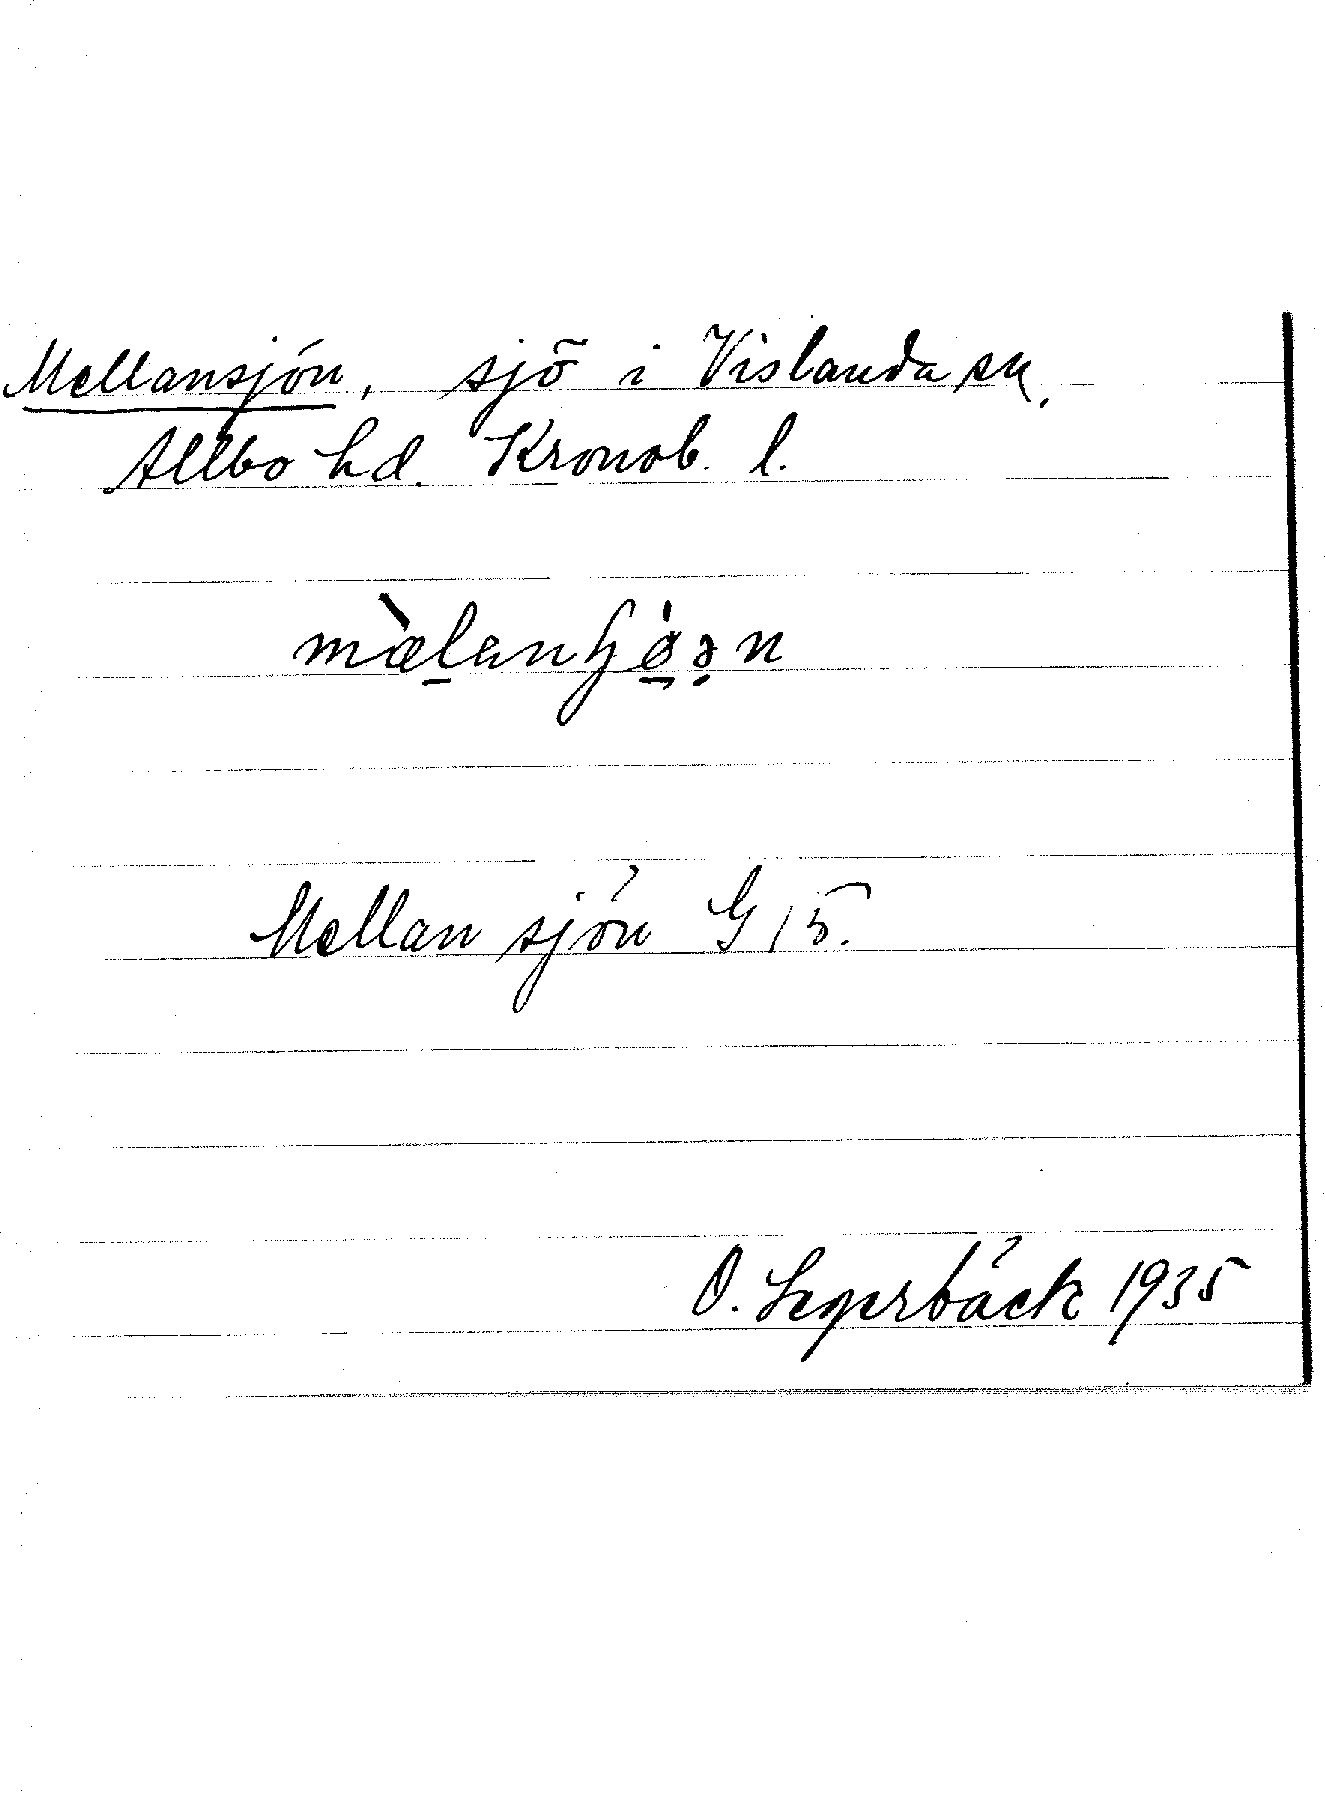 Mellansjön, sjö i Vislanda sn,
Allbo hd. Kronob. l.
mæ̀lanɧǿən
Mellan sjön G 15.
O. Legerbäck 1935